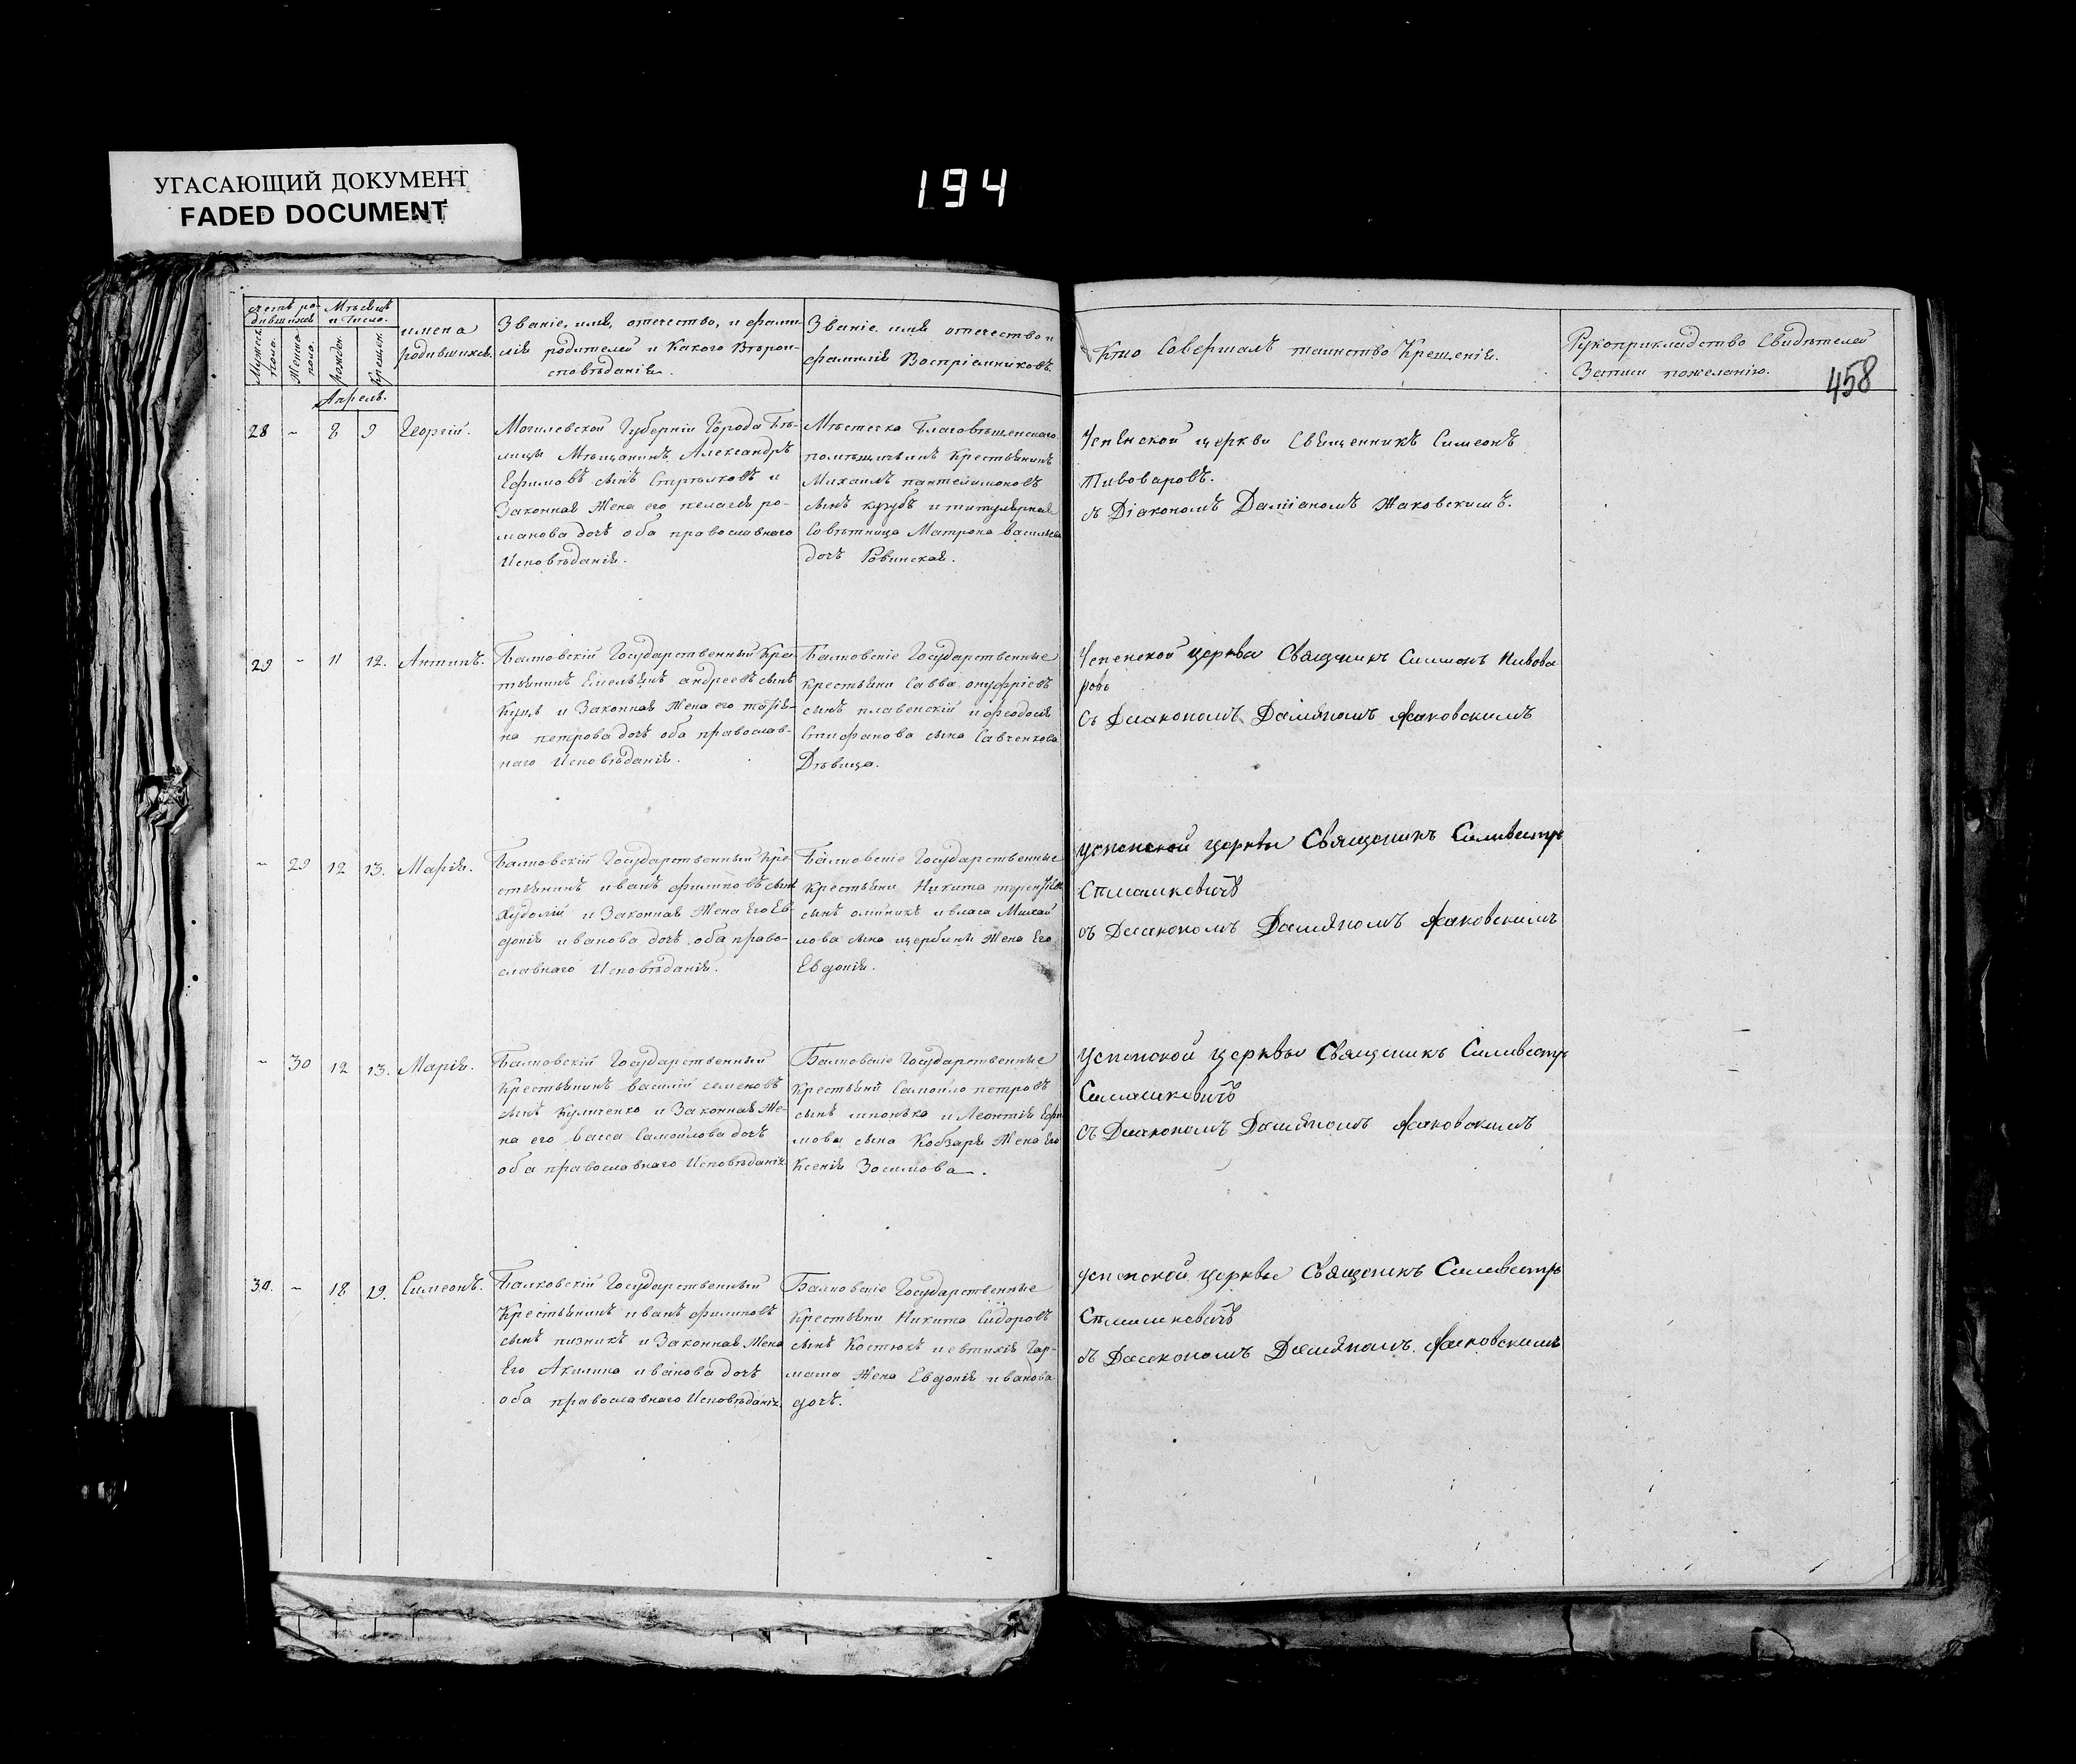 УГАСАЮЩИЙ ДОКУМЕНТ
FADED DOCUMENT
194
счетъ ро-
дившихся
Мужеск.
пола.
Женска
пола.
Мѣсяцъ
и число.
рожден.
Крещен.
имена
родившихся.
Званіе, имя, отечество, и фами-
лія родителей и Какого Вѣрои-
сповѣданія.
Званіе имя отечество и
фамилія Воспріемниковъ.
Кто Совершалъ таинство Крещенія.
Рукоприкладство Свидѣтелей
Записи пожеланію.
458
Апрель.
28 - 8 9 Георгій.
Могилевской Губерніи Города Бѣ-
лицы Мѣщанинъ Александръ
Ефимовъ сынъ и
Законная Жена его пелагея ро-
манова дочь оба православнаго
Исповѣданія.
Мѣстечка Благовѣщенскаго
помѣщичьинъ Крестьянинъ
Михаилъ пантейимоновъ
сынъ крубъ и титулярная
Совѣтница Матрона васильева
дочь Ровинская.
Успенской церкви Священникъ Симеонъ
Пивоваровъ.
съ Діакономъ Даміаномъ Жаковскимъ.
29 - 11 12. Антипъ.
Балковскій Государственный Кре-
тьянинъ Емельянъ андреевъ сынъ
и Законная Жена его татія-
на петрова дочь оба православ-
наго Исповѣданія.
Балковскіе Государственные
крестьяни Савва онуфріевъ
сынъ плавенскій и феодосія
Стифанова сына Савченкова
Дѣвица.
Успенской церкви Священикъ Симионъ Пивова
ровъ
Съ Диакономъ Даміяномъ Жаковскимъ
- 29 12 13. Марія.
Балковскій Государственный Кре-
стьянинъ иванъ филиповъ сынъ
Худолій и Законная Жена Его Ев-
докія иванова дочь оба право-
славнаго Исповѣданія.
Балковскіе Государственные
Крестьяни Никита терентіевъ
сынъ олійникъ и власа Михай
лова сына щербини Жена Его
Евдокія.
Успенской церквы Священикъ Силивестръ
Стмашкевичъ
съ Диакономъ Даміяномъ Жаковскимъ
- 30 12 13. Марія.
Балковскій Государственный
Крестьянинъ василій семеновъ
сынъ Куличенко и Законная Же-
на его васса Самойлова дочь
оба православнаго Исповѣданія
Балковскіе Государственные
Крестьяни Самойло петровъ
сынъ шпонька и Леонтія Ефи
мова сына Кобзаря Жена Его
Ксенія Зосимова.
Успенской церквы Священикъ Силивестръ
Симашкевичъ
съ Диакономъ Даміяномъ Жаковскимъ
30. - 18 19. Симеонъ.
Балковскій Государственный
Крестьянинъ иванъ филиповъ
сынъ пизникъ и Законная Жена
Его Акилина иванова дочь
оба православнаго Исповѣданія
Балковскіе Государственные
Крестьяни Никита Сидоровъ
сынъ Костюкъ и евтихія Гар-
маша Жена Евдокія иванова
дочь.
Успенской церквы Священикъ Силивестръ
Стмашкевичъ
съ Диакономъ Даміяномъ Жаковскимъ